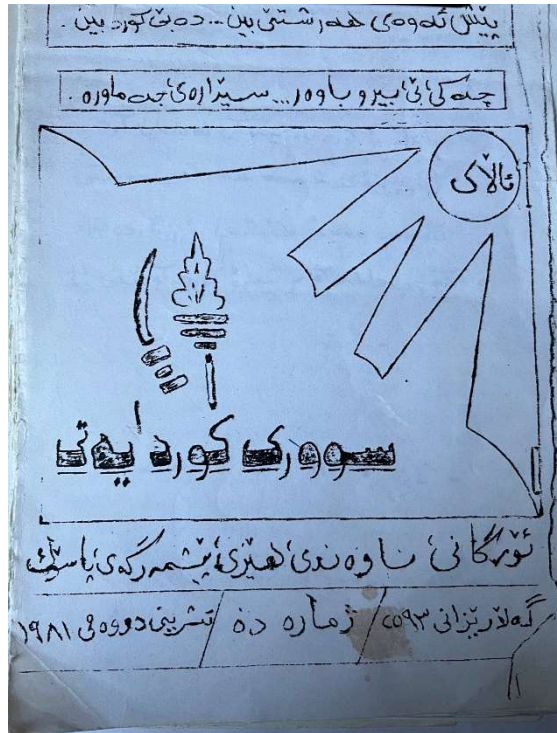 پێش ئەوەی هەر شتێ بین... دەبێ کورد بین.
چەکی بێ بیرو باوەر... سێدارەی جەماورە.
ئاڵای
سووری کوردایەتی
ئۆرگانی ناوەندی هێزی پێشمەرگەی پاسۆک
گەڵارێزانی ٢٥٩٣/ ژمارە دە / تشرینی دووەمی ١٩٨١
١